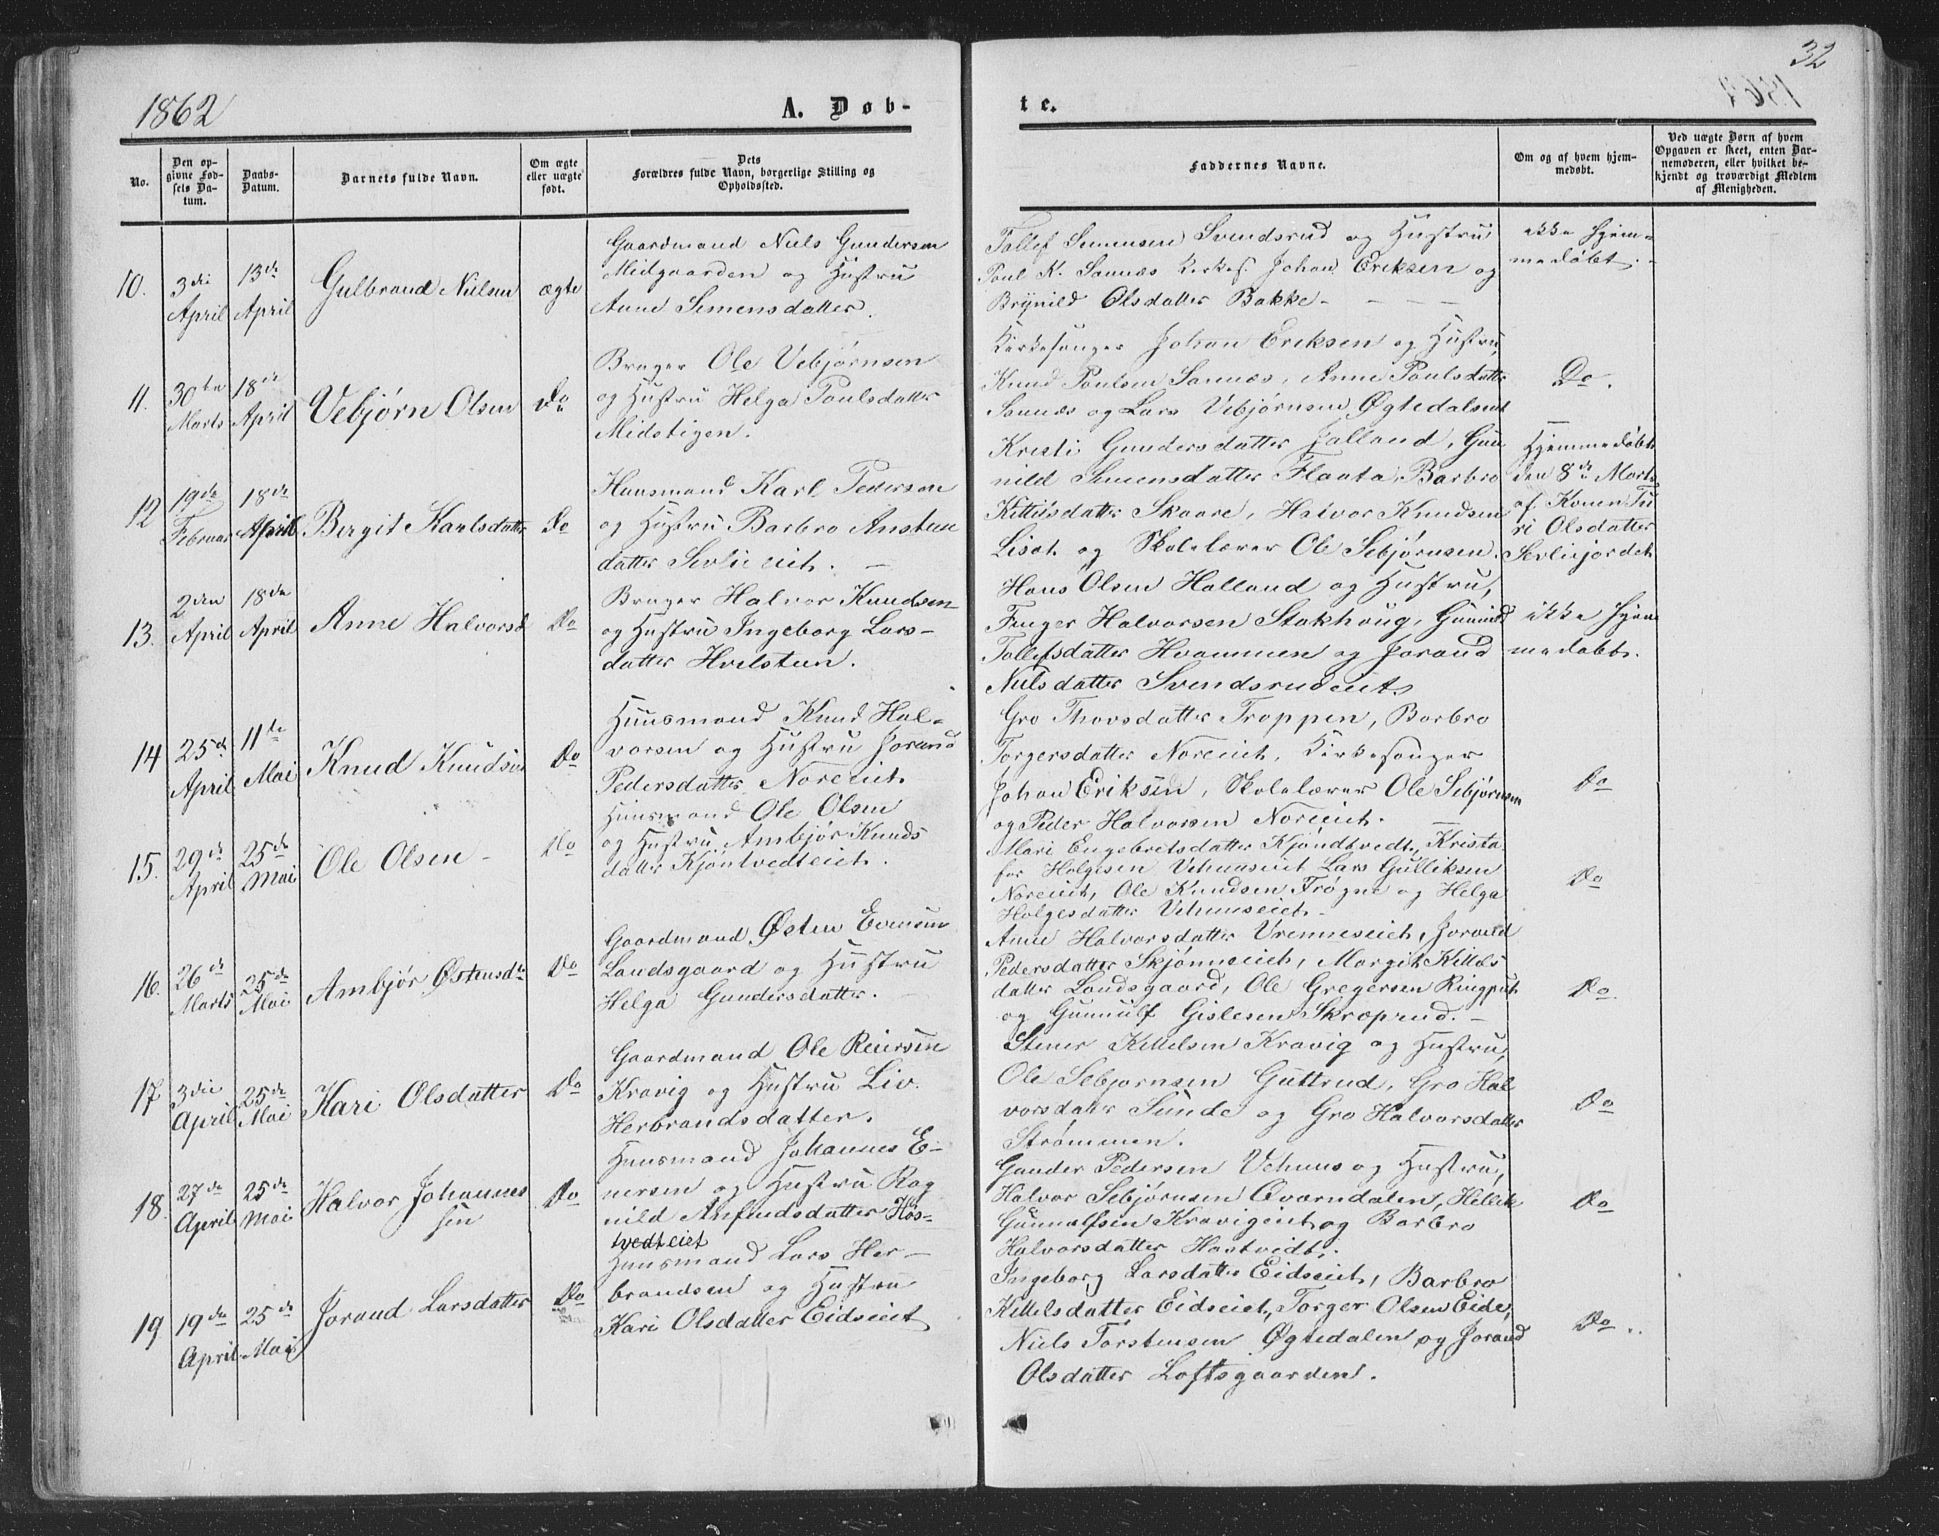 1862
A. Døb-
te.
32
No.
Den op-
givne Fød-
sels Da-
tum.
Daabs-
Datum.
Barnets fulde Navn.
Om ægte
eller uægte
født.
Dets
Forældres fulde Navn, borgerlige Stilling og
Opholdssted.
Faddernes Navne.
Om og af hvem hjem-
medøbt.
Ved uægte Børn af hvem
Opgaven er skeet, enten Bar-
nemoderen, eller hvilket be-
kjendt og troværdigt Medlem
af Menigheden.
10.
3die
April
13de
April
Gulbrand Nielsen
ægte
Gaardmand Niels Gundersen
Midgaarden og Hustru
Anne Simensdatter.
Tollef Simensen Svendsrud og Hustru
Poul K. Sannæs Kirkes. Johan Eriksen og
Brynild Olsdatter Bakke -
ikke hjem-
medøbt.
11.
30te
Marts
18de
April
Vebjørn Olsen
Do
Bruger Ole Vebjørnsen
og Hustru Helga Poulsdatter
Midstigen.
Kirkesanger Johan Eriksen og Hustru,
Knud Poulsen Sannæs, Anne Poulsdatter
Sannæs og Lars Vebjørnsen Øgtedalseiet
Do.
12
19de
Februar
18de
April
Birgit Karlsdatter
Do
Huusmand Karl Pedersen
og Hustru Barbro Anstens
datter Sevlieeiet. -
Kristi Gundersdatter Jalland, Gun
nild Simensdatter Flaata, Barbro
Kittilsdatter Skaare, Halvor Knudsen
Liset og Skolelærer Ole Sebjørnsen.
Hjemmedøbt
den 8de Marts
af Konen Tu
ri Olsdatter
Sevliejordet
13.
2den
April
18de
April
Anne Halvorsd
Do
Bruger Halvor Knudsen
og Hustru Ingeborg Lars-
datter Hvilstun.
Hans Olsen Halland og Hustru,
Halvorsen Stakhaug, Gunild
Tollefsdatter Hvammen og Jorand
Nilsdatter Svendsrudeiet.
ikke hjem
medøbt.
14
25de
April
11te
Mai
Knud Knudsen
Do
Huusmand Knud Hal-
vorsen og Hustru Jorand
Pedersdatter Noreeiet
Gro Thovsdatter Troppen, Barbro
Torgersdatter Noreeiet, Kirkesanger
Johan Eriksen, Skolelærer Ole Sebjørnsen
og Peder Halvorsen Noreeiet. -
Do
15.
29de
April
25de
Mai
Ole Olsen -
Do
Huusmand Ole Olsen
og Hustru Ambjør Knuds
datter Kjøntvedteiet.
Mari Engebretsdatter Kjøndtvedt, Krista
for Holgesen Vehuuseiet Lars Gulliksen
Noreeiet, Ole Knudsen Frøgne og Helga
Holgesdatter Vehuuseiet -
Do
16.
26de
Marts
25de
Mai
Ambjør Østensdtr
Do
Gaardmand Østen Evensen
Landsgaard og Hustru
Helga Gundersdatter.
Anne Halvorsdatter Vrenneseiet, Jorald
Pedersdatter Skjønneeiet, Margit Kittils
datter Landsgaard, Ole Gregersen Ringput
og Gunnulf Gislesen Skroprud. -
Do.
17
3die
April
25de
Mai
Kari Olsdatter
Do
Gaardmand Ole Reiersen
Kravig og Hustru Liv
Herbrandsdatter.
Stener Kittelsen Kravig og Hustru,
Ole Sebjørnsen Guttrud, Gro Hal
vorsdatter Sunde og Gro Halvorsdatter
Strømmen.
Do
18.
27de
April
25de
Mai
Halvor Johannes
sen
Do
Huusmand Johannes E-
nersen og Hustru Rag
nild Anfindsdatter Høs-
tvedteiet
Gunder Pedersen Vehuus og Hustru,
Halvor Sebjørnsen Qværndalen, Hellik
Gunnulfsen Kravigeiet og Barbro
Halvorsdatter Høstvedt.
Do
19
19de
April
25de
Mai
Jorand Larsdatter
Do
Huusmand Lars Her-
brandsen og Hustru
Kari Olsdatter Eidseiet
Ingeborg Larsdatter Eidseiet, Barbro
Kittelsdatter Eidseiet, Torger Olsen Eide,
Niels Torstensen Øgtedalen og Jorand
Olsdatter Loftsgaarden.
Do.